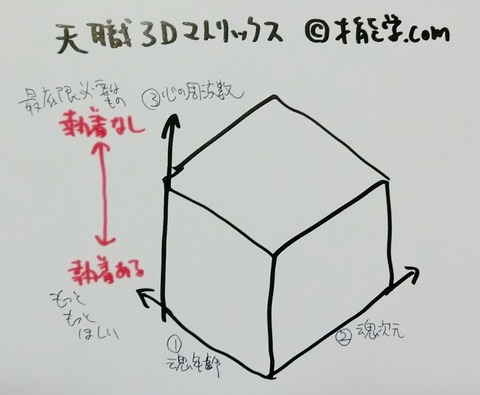 天職3Dマトリックス ©才能学.com
最底限必要なもの
③心の周波数
執着なし
執着ある
もっと
もっと
ほしい
①
魂年齢
②魂次元